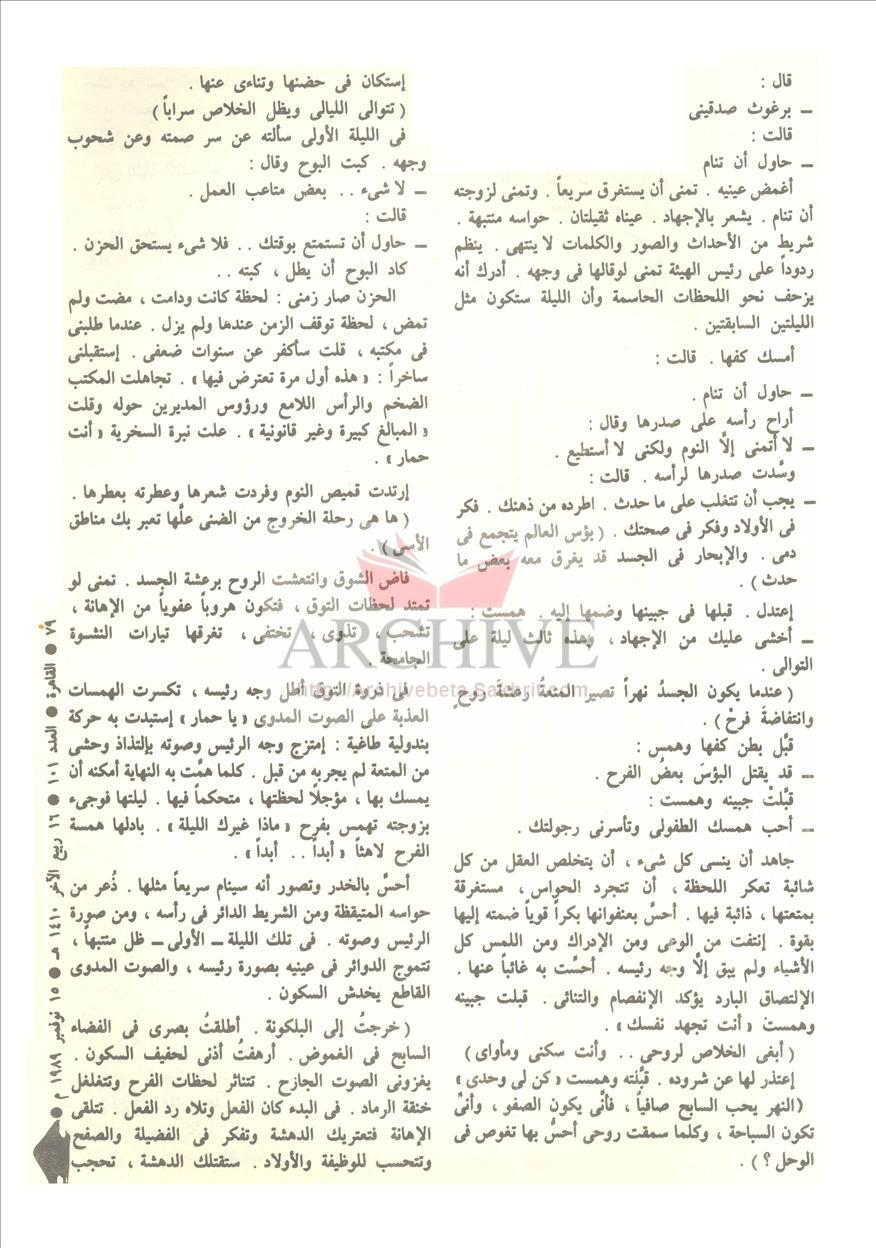 قال :
ــ برغوث صدقينى
قالت :
ــ حاول أن تنام
أغمض عينيه . تمنى أن يستغرق سريعاً . وتمنى لزوجته
أن تنام . يشعر بالإجهاد . عيناه ثقيلتان . حواسه منتبهة .
شريط من الأحداث والصور والكلمات لا ينتهى . ينظم
ردوداً على رئيس الهيئة تمنى لوقالها فى وجهه . أدرك أنه
يزحف نحو اللحظات الحاسمة وأن الليلة ستكون مثل
الليلتين السابقتين .
أمسك كفها . قالت :
ــ حاول أن تنام .
أراح رأسه على صدرها وقال :
ــ لا أتمنى إلَّا النوم ولكنى لا أستطيع .
وسَّدت صدرها لرأسه . قالت :
ــ يجب أن تتغلب على ما حدث . اطرده من ذهنك . فكر
فى الأولاد وفكر فى صحتك . ( بؤس العالم يتجمع فى
دمى . والإبحار فى الجسد قد يغرق معه بعض ما
حدث ) .
إعتدل . قبلها فى جبينها وضمها إليه . همست :
ــ أخشى عليك من الإجهاد ، وهذه ثالث ليلة على
التوالى .
( عندما يكون الجسدُ نهراً تصير المتعةُ رعشةَ روحٍ
وانتفاضةَ فرحْ ) .
قبَّل بطن كفها وهمس :
ــ قد يقتل البؤسَ بعضُ الفرح .
قبَّلتْ جبينه وهمست :
ــ أحب همسك الطفولى وتأسرنى رجولتك .
جاهد أن ينسى كل شىء ، أن يتخلص العقل من كل
شائبة تعكر اللحظة ، أن تتجرد الحواس ، مستغرقة
بمتعتها ، ذائبة فيها . أحسَّ بعنفوانها بكراً قوياً ضمته إليها
بقوة . إنتفت من الوعى ومن الإدراك ومن اللمس كل
الأشياء ولم يبق إلَّا وجه رئيسه . أحسَّت به غائباً عنها .
الإلتصاق البارد يؤكد الإنفصام والتنائى . قبلت جبينه
وهمست « أنت تجهد نفسك » .
( أبغى الخلاص لروحى .. وأنت سكنى ومأواى )
إعتذر لها عن شروده . قبَّلته وهمست « كن لى وحدى »
( النهر يحب السابح صافياً ، فأنَّى يكون الصفو ، وأنىَّ
تكون السباحة ، وكلما سمقت روحى أحسُّ بها تغوص فى
الوحل ؟ ) .
إستكان فى حضنها وتناءى عنها .
( تتوالى الليالى ويظل الخلاص سراباً )
فى الليلة الأولى سألته عن سر صمته وعن شحوب
وجهه . كبت البوح وقال :
ــ لا شىء .. بعض متاعب العمل .
قالت :
ــ حاول أن تستمتع بوقتك .. فلا شىء يستحق الحزن .
كاد البوح أن يطل ، كبته ..
الحزن صار زمنى : لحظة كانت ودامت ، مضت ولم
تمض ، لحظة توقف الزمن عندها ولم يزل . عندما طلبنى
فى مكتبه ، قلت سأكفر عن سنوات ضعفى . إستقبلنى
ساخراً : « هذه أول مرة تعترض فيها » . تجاهلت المكتب
الضخم والرأس اللامع ورؤوس المديرين حوله وقلت
« المبالغ كبيرة وغير قانونية » . علت نبرة السخرية « أنت
حمار » .
إرتدت قميص النوم وفردت شعرها وعطرته بعطرها .
( ها هى رحلة الخروج من الضنى علَّها تعبر بك مناطق
الأسى ) .
فاض الشوق وانتعشت الروح برعشة الجسد . تمنى لو
تمتد لحظات التوق ، فتكون هروباً عفوياً من الإهانة ،
تشحب ، تذوى ، تختفى ، تغرقها تيارات النشوة
الجامحة .
فى ذروة التوق أطل وجه رئيسه ، تكسرت الهمسات
العذبة على الصوت المدوى « يا حمار » إستبدت به حركة
بندولية طاغية : إمتزج وجه الرئيس وصوته بإلتذاذ وحشى
من المتعة لم يجربه من قبل . كلما همَّت به النهاية أمكنه أن
يمسك بها ، مؤجلًا لحظتها ، متحكماً فيها . ليلتها فوجىء
بزوجته تهمس بفرح « ماذا غيرك الليلة » . بادلها همسة
الفرح لاهثاً « أبداً .. أبداً » .
أحسَّ بالخدر وتصور أنه سينام سريعاً مثلها . ذُعر من
حواسه المتيقظة ومن الشريط الدائر فى رأسه ، ومن صورة
الرئيس وصوته . فى تلك الليلة ــ الأولى ــ ظل منتبهاً ،
تتموج الدوائر فى عينيه بصورة رئيسه ، والصوت المدوى
القاطع يخدش السكون .
( خرجتُ إلى البلكونة . أطلقتُ بصرى فى الفضاء
السابح فى الغموض . أرهفتُ أذنى لحفيف السكون .
يغزونى الصوت الجازح . تتناثر لحظات الفرح وتتغلغل
خنقة الرماد . فى البدء كان الفعل وتلاه رد الفعل . تتلقى
الإهانة فتعتريك الدهشة وتفكر فى الفضيلة والصفح
وتتحسب للوظيفة والأولاد . ستقتلك الدهشة ، تحجب
٧٩ ● القاهرة ● العدد ١٠١ ● ١٦ ربيع الآخر ١٤١٠ هـ ● ١٥ نوفمبر ١٩٨٩ م ●
ARCHIVE
http://Archivebeta.Sakhrit.com